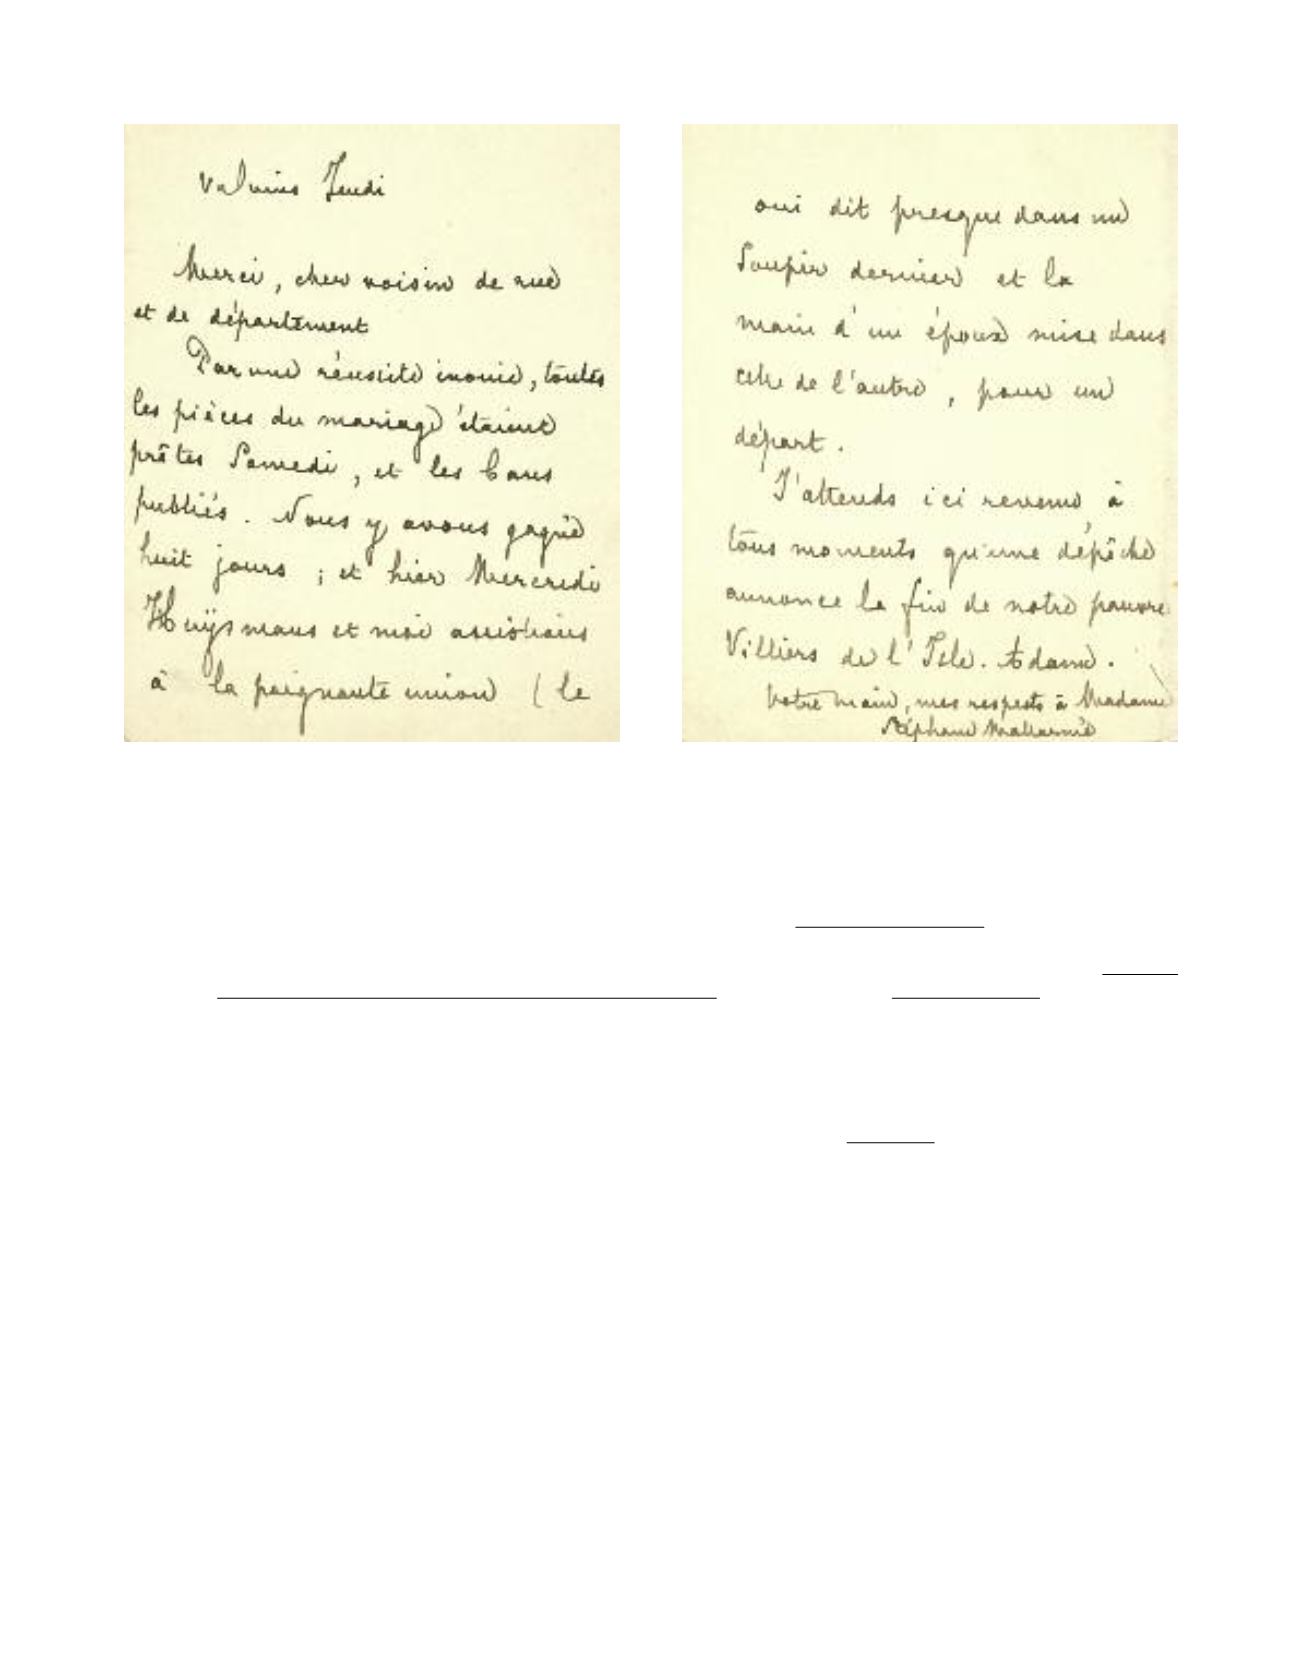 Valvins Jeudi
Merci, cher voisin de rue
et de département
Par une réussite inouie, toutes
les pièces du mariage étaient
prêtes Samedi, et les bans
publiés. Nous y avons gagné
huit jours ; et hier Mercredi
Huÿsmans et moi assistions
à la poignante union (le
oui dit presque dans un
soupir dernier et la
main d'un époux mise dans
celle de l'autre, pour un
départ.
J'attends ici revenu à
tous moments qu'une dépêche
annonce la fin de notre pauvre
Villiers de l'Isle-Adam.
Votre main, mes respects à Madame
Stéphane Mallarmé